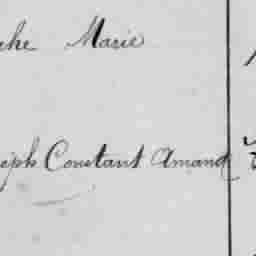 che Marie
eph Constant Amand